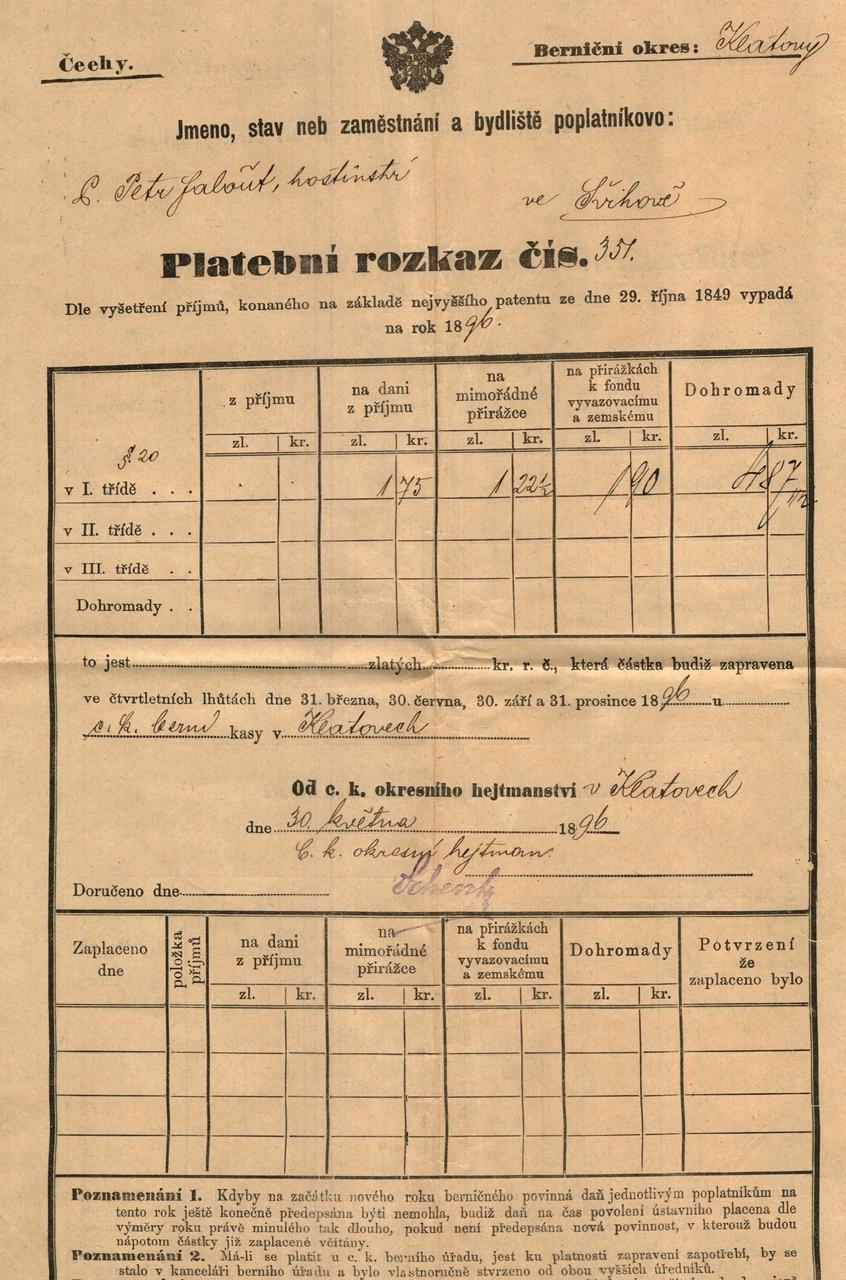 Čechy.
Berniční okres: Klatovy
Jmeno, stav neb zaměstnání a bydliště poplatníkovo:
P. Petr Jalout, hostinství
ve Švihově
Platební rozkaz čís. 351.
Dle vyšetření příjmů, konaného na základě nejvyššího patentu ze dne 29. října 1849 vypadá
na rok 1896.
z příjmu
na dani z příjmu
na mimořádné přirážce
na přirážkách k fondu vyvazovacímu a zemskému
Dohromady
zl. kr. zl. kr. zl. kr. zl. kr. zl. kr.
§ 20
v I. třídě . . . 1 75 1 22½ 1 90 4 87½
v II. třídě . . .
v III. třídě . .
Dohromady . .
to jest zlatých kr. r. č., která částka budiž zapravena
ve čtvrtletních lhůtách dne 31. března, 30. června, 30. září a 31. prosince 1896 u
c. k. berní kasy v Klatovech
Od c. k. okresního hejtmanství v Klatovech
dne 30. května 1896
C. k. okresní hejtman
Doručeno dne
Zaplaceno dne
položka příjmů
na dani z příjmu
na mimořádné přirážce
na přirážkách k fondu vyvazovacímu a zemskému
Dohromady
Potvrzení že zaplaceno bylo
zl. kr. zl. kr. zl. kr. zl. kr.
Poznamenání 1. Kdyby na začátku nového roku berničného povinná daň jednotlivým poplatníkům na
tento rok ještě konečně předepsána býti nemohla, budiž daň na čas povolení ústavního placena dle
výměry roku právě minulého tak dlouho, pokud není předepsána nová povinnost, v kterouž budou
nápotom částky již zaplacené včítány.
Poznamenání 2. Má-li se platit u c. k. berního úřadu, jest ku platnosti zapravení zapotřebí, by se
stalo v kanceláři berního úřadu a bylo vlastnoručně stvrzeno od obou vyšších úředníků.